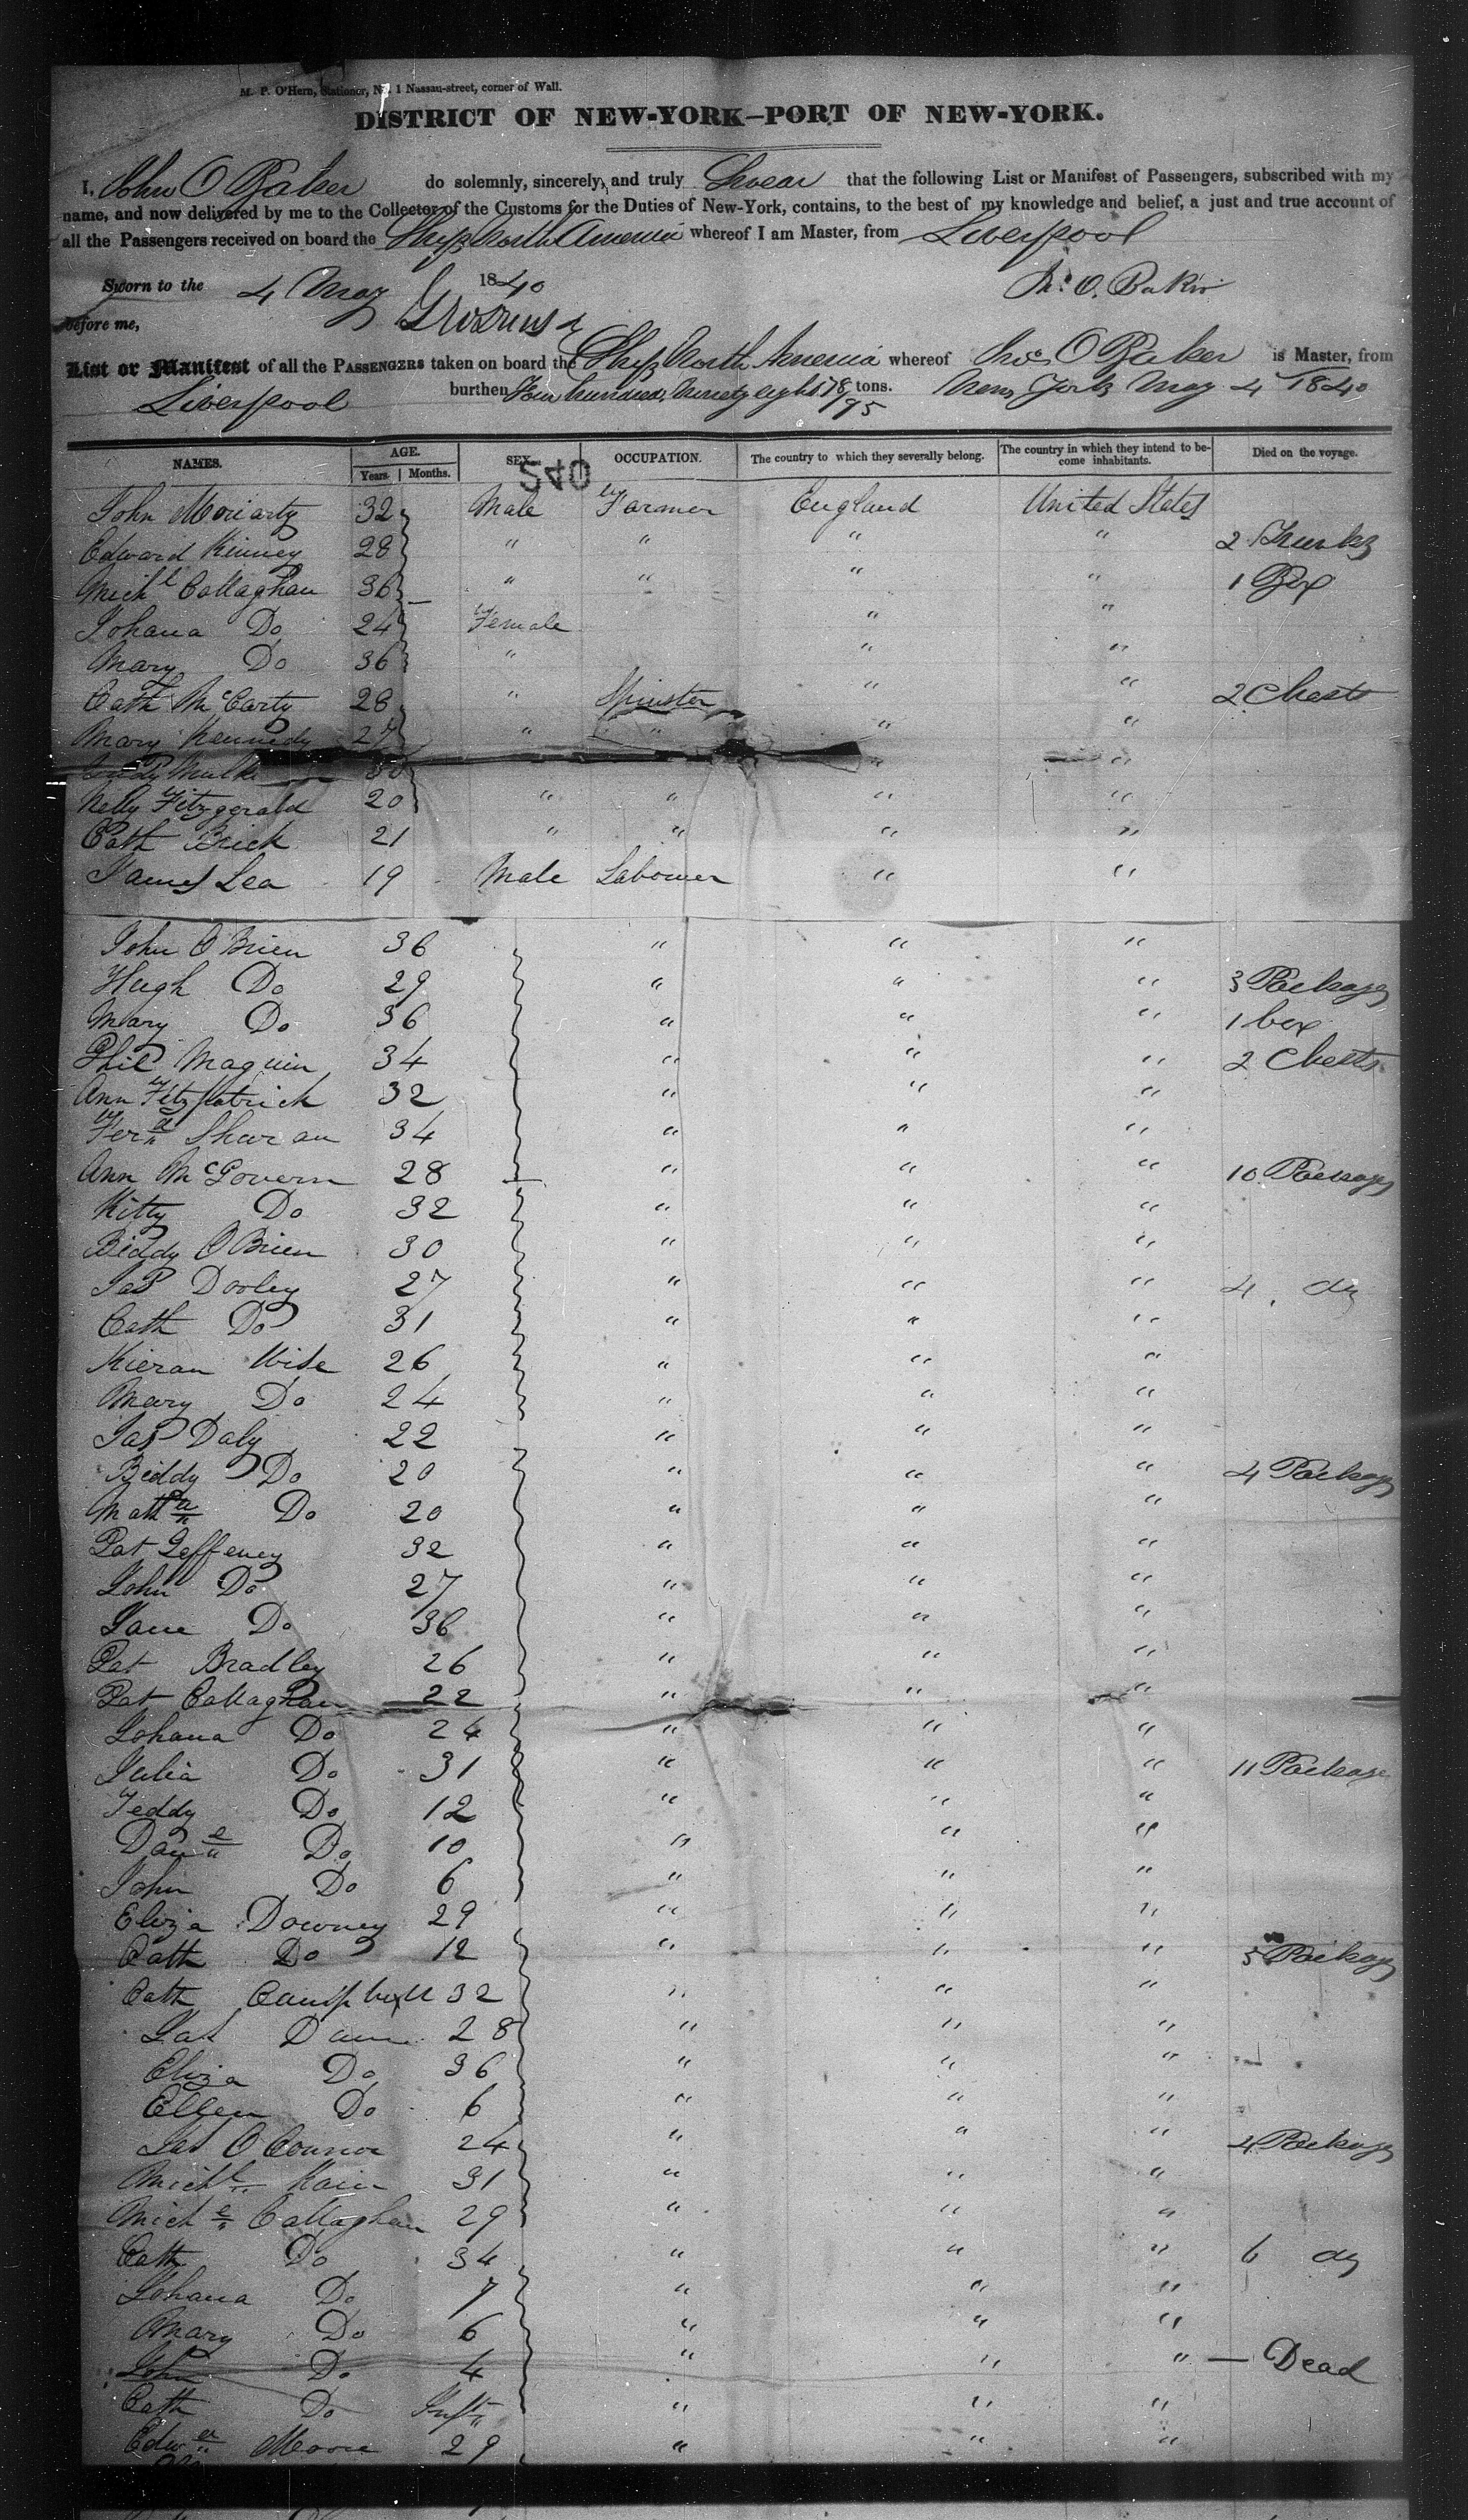 M. P. O'Hern, Stationer, No. 1 Nassau-street, corner of Wall.
DISTRICT OF NEW-YORK—PORT OF NEW-YORK.
I, John O Baker do solemnly, sincerely, and truly Swear that the following List or Manifest of Passengers, subscribed with my
name, and now delivered by me to the Collector of the Customs for the Duties of New-York, contains, to the best of my knowledge and belief, a just and true account of
all the Passengers received on board the Ship North America whereof I am Master, from Liverpool
Sworn to the 4 May 1840 Jno. O. Baker
before me,
List or Manifest of all the PASSENGERS taken on board the Ship North America whereof Jno O Baker is Master, from
Liverpool burthen Four hundred, Ninety eight 18/95 tons. New York May 4 1840
NAMES. AGE. Years. Months. SEX. OCCUPATION. The country to which they severally belong. The country in which they intend to become inhabitants. Died on the voyage.
540
John Moriarty 32 Male Farmer England United States
Edward Kinney 28 " " " " 2 Trunks
Michl Callaghan 36 " " " " 1 Box
Johana Do 24 Female " "
Mary Do 36 " " "
Cath McCarty 28 " Spinster " " 2 Chests
Mary Kennedy 27 " " " "
30 " "
Nelly Fitzgerald 20 " " " "
Cath Brick 21 " " " "
James Lea 19 Male Labourer " "
John O Brien 36 " " "
Hugh Do 29 " " " 3 Packages
Mary Do 36 " " " 1 box
Phil Maguin 34 " " " 2 Chests
Ann Fitzpatrick 32 " " "
Ferd Sharan 34 " " "
Ann McGovern 28 " " " 10 Packages
Kitty Do 32 " " "
Biddy O Brien 30 " " "
Jas Dooley 27 " " " 4 do
Cath Do 31 " " "
Kieran Wise 26 " " "
Mary Do 24 " " "
Jas Daly 22 " " "
Biddy Do 20 " " " 4 Packages
Matth Do 20 " " "
Pat Geffeney 32 " " "
John Do 27 " " "
Jane Do 36 " " "
Pat Bradley 26 " " "
Pat Callaghan 22 " " "
Johana Do 24 " " "
Julia Do 31 " " " 11 Package
Teddy Do 12 " " "
Danl Do 10 " " "
John Do 6 " " "
Eliza Downey 29 " " "
Cath Do 12 " " " 5 Packages
Cath Campbell 32 " " "
Jas Dunn 28 " " "
Eliza Do 36 " " "
Ellen Do 6 " " "
Jas O Connor 24 " " " 4 Packages
Michl Kain 31 " " "
Michl Callaghan 29 " " "
Cath Do 34 " " " 6 do
Johana Do 7 " " "
Mary Do 6 " " "
John Do 4 " " " — Dead
Cath Do Inft " " "
Edwd Moore 29 " " "